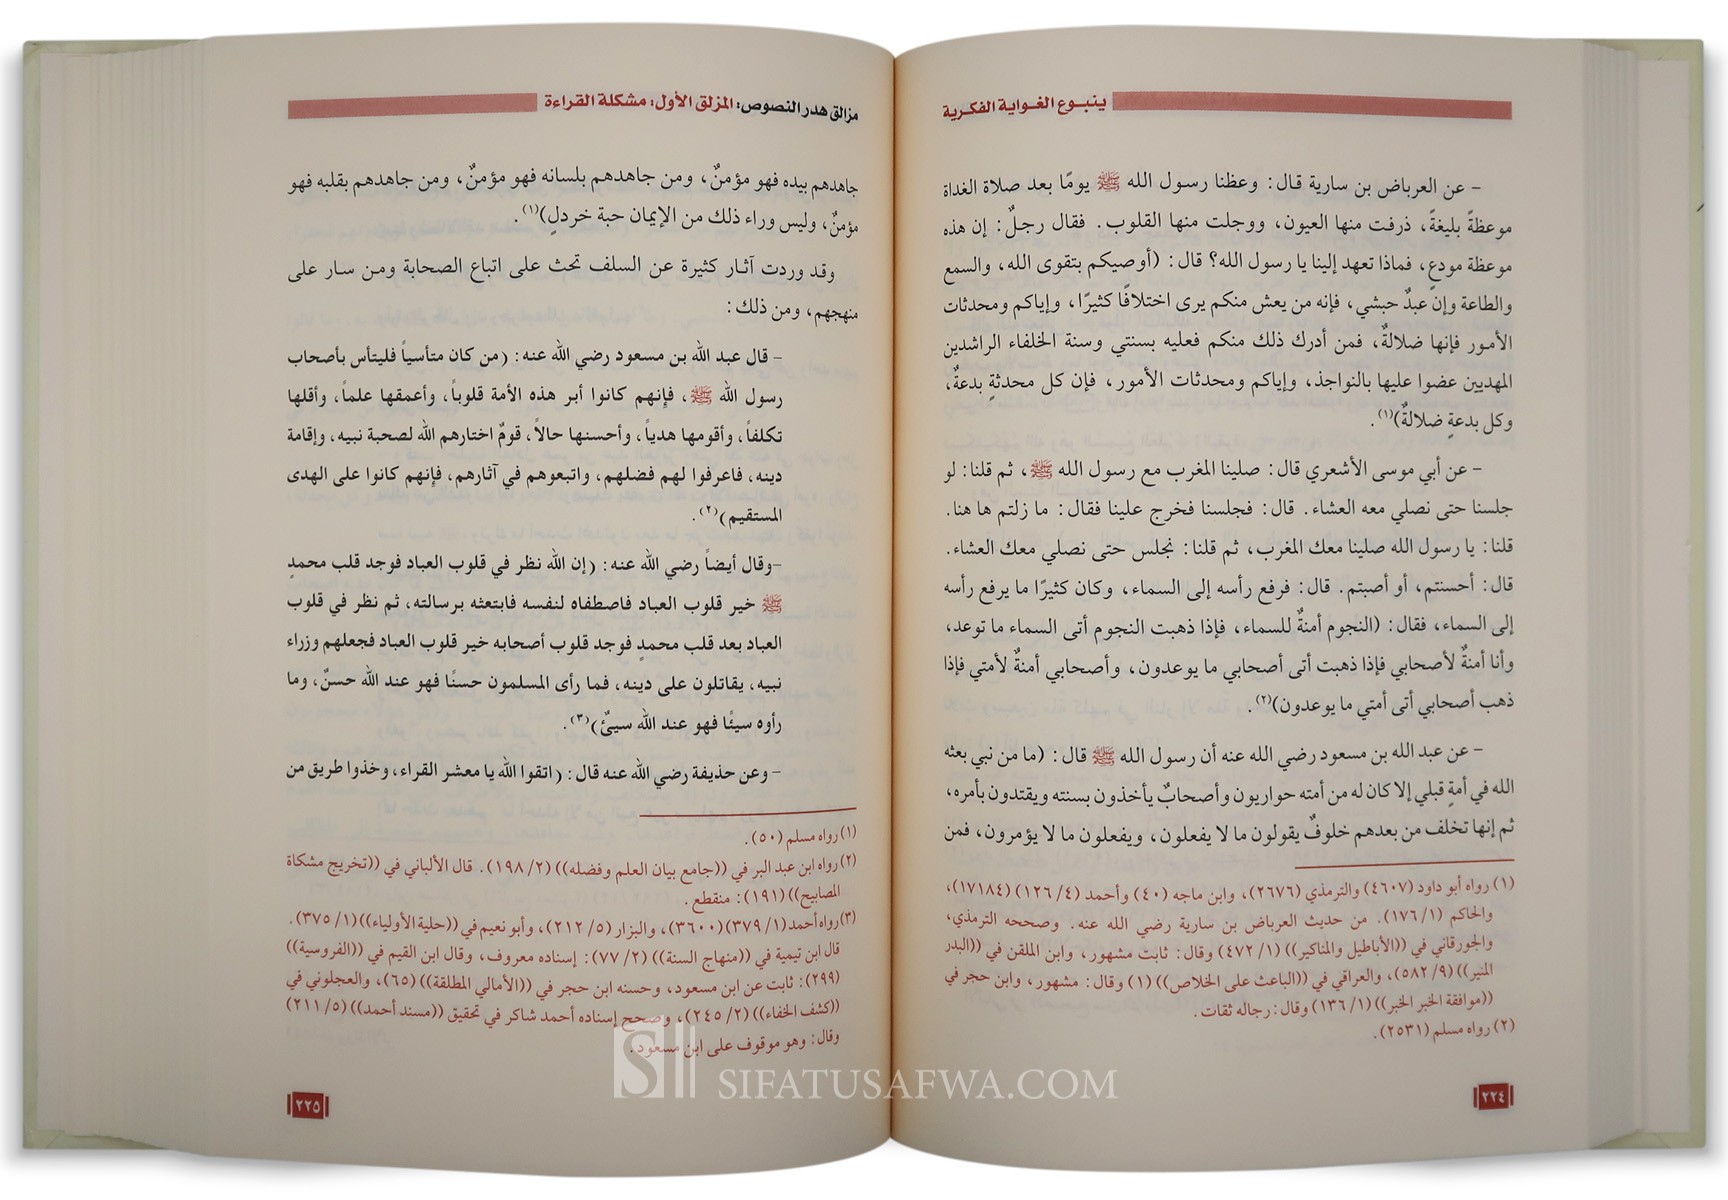 ينبـوع الغـواية الفكـرية
– عن العرباض بن سارية قال: وعظنا رسول الله ﷺ يومًا بعد صلاة الغداة
موعظةً بليغةً، ذرفت منها العيون، ووجلت منها القلوب. فقال رجلٌ: إن هذه
موعظة مودعٍ، فماذا تعهد إلينا يا رسول الله؟ قال: (أوصيكم بتقوى الله، والسمع
والطاعة وإن عبدٌ حبشي، فإنه من يعش منكم يرى اختلافًا كثيرًا، وإياكم ومحدثات
الأمور فإنها ضلالةٌ، فمن أدرك ذلك منكم فعليه بسنتي وسنة الخلفاء الراشدين
المهديين عضوا عليها بالنواجذ، وإياكم ومحدثات الأمور، فإن كل محدثةٍ بدعةٌ،
وكل بدعةٍ ضلالةٌ)(١).
– عن أبي موسى الأشعري قال: صلينا المغرب مع رسول الله ﷺ، ثم قلنا: لو
جلسنا حتى نصلي معه العشاء. قال: فجلسنا فخرج علينا فقال: ما زلتم ها هنا.
قلنا: يا رسول الله صلينا معك المغرب، ثم قلنا: نجلس حتى نصلي معك العشاء.
قال: أحسنتم، أو أصبتم. قال: فرفع رأسه إلى السماء، وكان كثيرًا ما يرفع رأسه
إلى السماء، فقال: (النجوم أمنةٌ للسماء، فإذا ذهبت النجوم أتى السماء ما توعد،
وأنا أمنةٌ لأصحابي فإذا ذهبت أتى أصحابي ما يوعدون، وأصحابي أمنةٌ لأمتي فإذا
ذهب أصحابي أتى أمتي ما يوعدون)(٢).
– عن عبد الله بن مسعود رضي الله عنه أن رسول الله ﷺ قال: (ما من نبي بعثه
الله في أمةٍ قبلي إلا كان له من أمته حواريون وأصحابٌ يأخذون بسنته ويقتدون بأمره،
ثم إنها تخلف من بعدهم خلوفٌ يقولون ما لا يفعلون، ويفعلون ما لا يؤمرون، فمن
(١) رواه أبو داود (٤٦٠٧) والترمذي (٢٦٧٦)، وابن ماجه (٤٠) وأحمد (٤/ ١٢٦) (١٧١٨٤)،
والحاكم (١/ ١٧٦). من حديث العرباض بن سارية رضي الله عنه. وصححه الترمذي،
والجورقاني في ((الأباطيل والمناكير)) (١/ ٤٧٢) وقال: ثابت مشهور، وابن الملقن في ((البدر
المنير)) (٩/ ٥٨٢)، والعراقي في ((الباعث على الخلاص)) (١) وقال: مشهور، وابن حجر في
((موافقة الخبر الخبر)) (١/ ١٣٦) وقال: رجاله ثقات.
(٢) رواه مسلم (٢٥٣١).
٢٢٤
مزالق هدر النصوص: المزلق الأول: مشكلة القراءة
جاهدهم بيده فهو مؤمنٌ، ومن جاهدهم بلسانه فهو مؤمنٌ، ومن جاهدهم بقلبه فهو
مؤمنٌ، وليس وراء ذلك من الإيمان حبة خردلٍ)(١).
وقد وردت آثار كثيرة عن السلف تحث على اتباع الصحابة ومن سار على
منهجهم، ومن ذلك:
– قال عبد الله بن مسعود رضي الله عنه: (من كان متأسياً فليتأس بأصحاب
رسول الله ﷺ، فإنهم كانوا أبر هذه الأمة قلوباً، وأعمقها علماً، وأقلها
تكلفاً، وأقومها هدياً، وأحسنها حالاً، قومٌ اختارهم الله لصحبة نبيه، وإقامة
دينه، فاعرفوا لهم فضلهم، واتبعوهم في آثارهم، فإنهم كانوا على الهدى
المستقيم)(٢).
–وقال أيضاً رضي الله عنه: (إن الله نظر في قلوب العباد فوجد قلب محمدٍ
ﷺ خير قلوب العباد فاصطفاه لنفسه فابتعثه برسالته، ثم نظر في قلوب
العباد بعد قلب محمدٍ فوجد قلوب أصحابه خير قلوب العباد فجعلهم وزراء
نبيه، يقاتلون على دينه، فما رأى المسلمون حسنًا فهو عند الله حسنٌ، وما
رأوه سيئًا فهو عند الله سيئٌ)(٣).
– وعن حذيفة رضي الله عنه قال: (اتقوا الله يا معشر القراء، وخذوا طريق من
(١) رواه مسلم (٥٠).
(٢) رواه ابن عبد البر في ((جامع بيان العلم وفضله)) (٢/ ١٩٨). قال الألباني في ((تخريج مشكاة
المصابيح)) (١٩١): منقطع.
(٣) رواه أحمد (١/ ٣٧٩) (٣٦٠٠)، والبزار (٥/ ٢١٢)، وأبو نعيم في ((حلية الأولياء)) (١/ ٣٧٥).
قال ابن تيمية في ((منهاج السنة)) (٢/ ٧٧): إسناده معروف، وقال ابن القيم في ((الفروسية))
(٢٩٩): ثابت عن ابن مسعود، وحسنه ابن حجر في ((الأمالي المطلقة)) (٦٥)، والعجلوني في
((كشف الخفاء)) (٢/ ٢٤٥)، وصحح إسناده أحمد شاكر في تحقيق ((مسند أحمد)) (٥/ ٢١١)
وقال: وهو موقوف على ابن مسعود.
٢٢٥
SIFATUSAFWA.COM